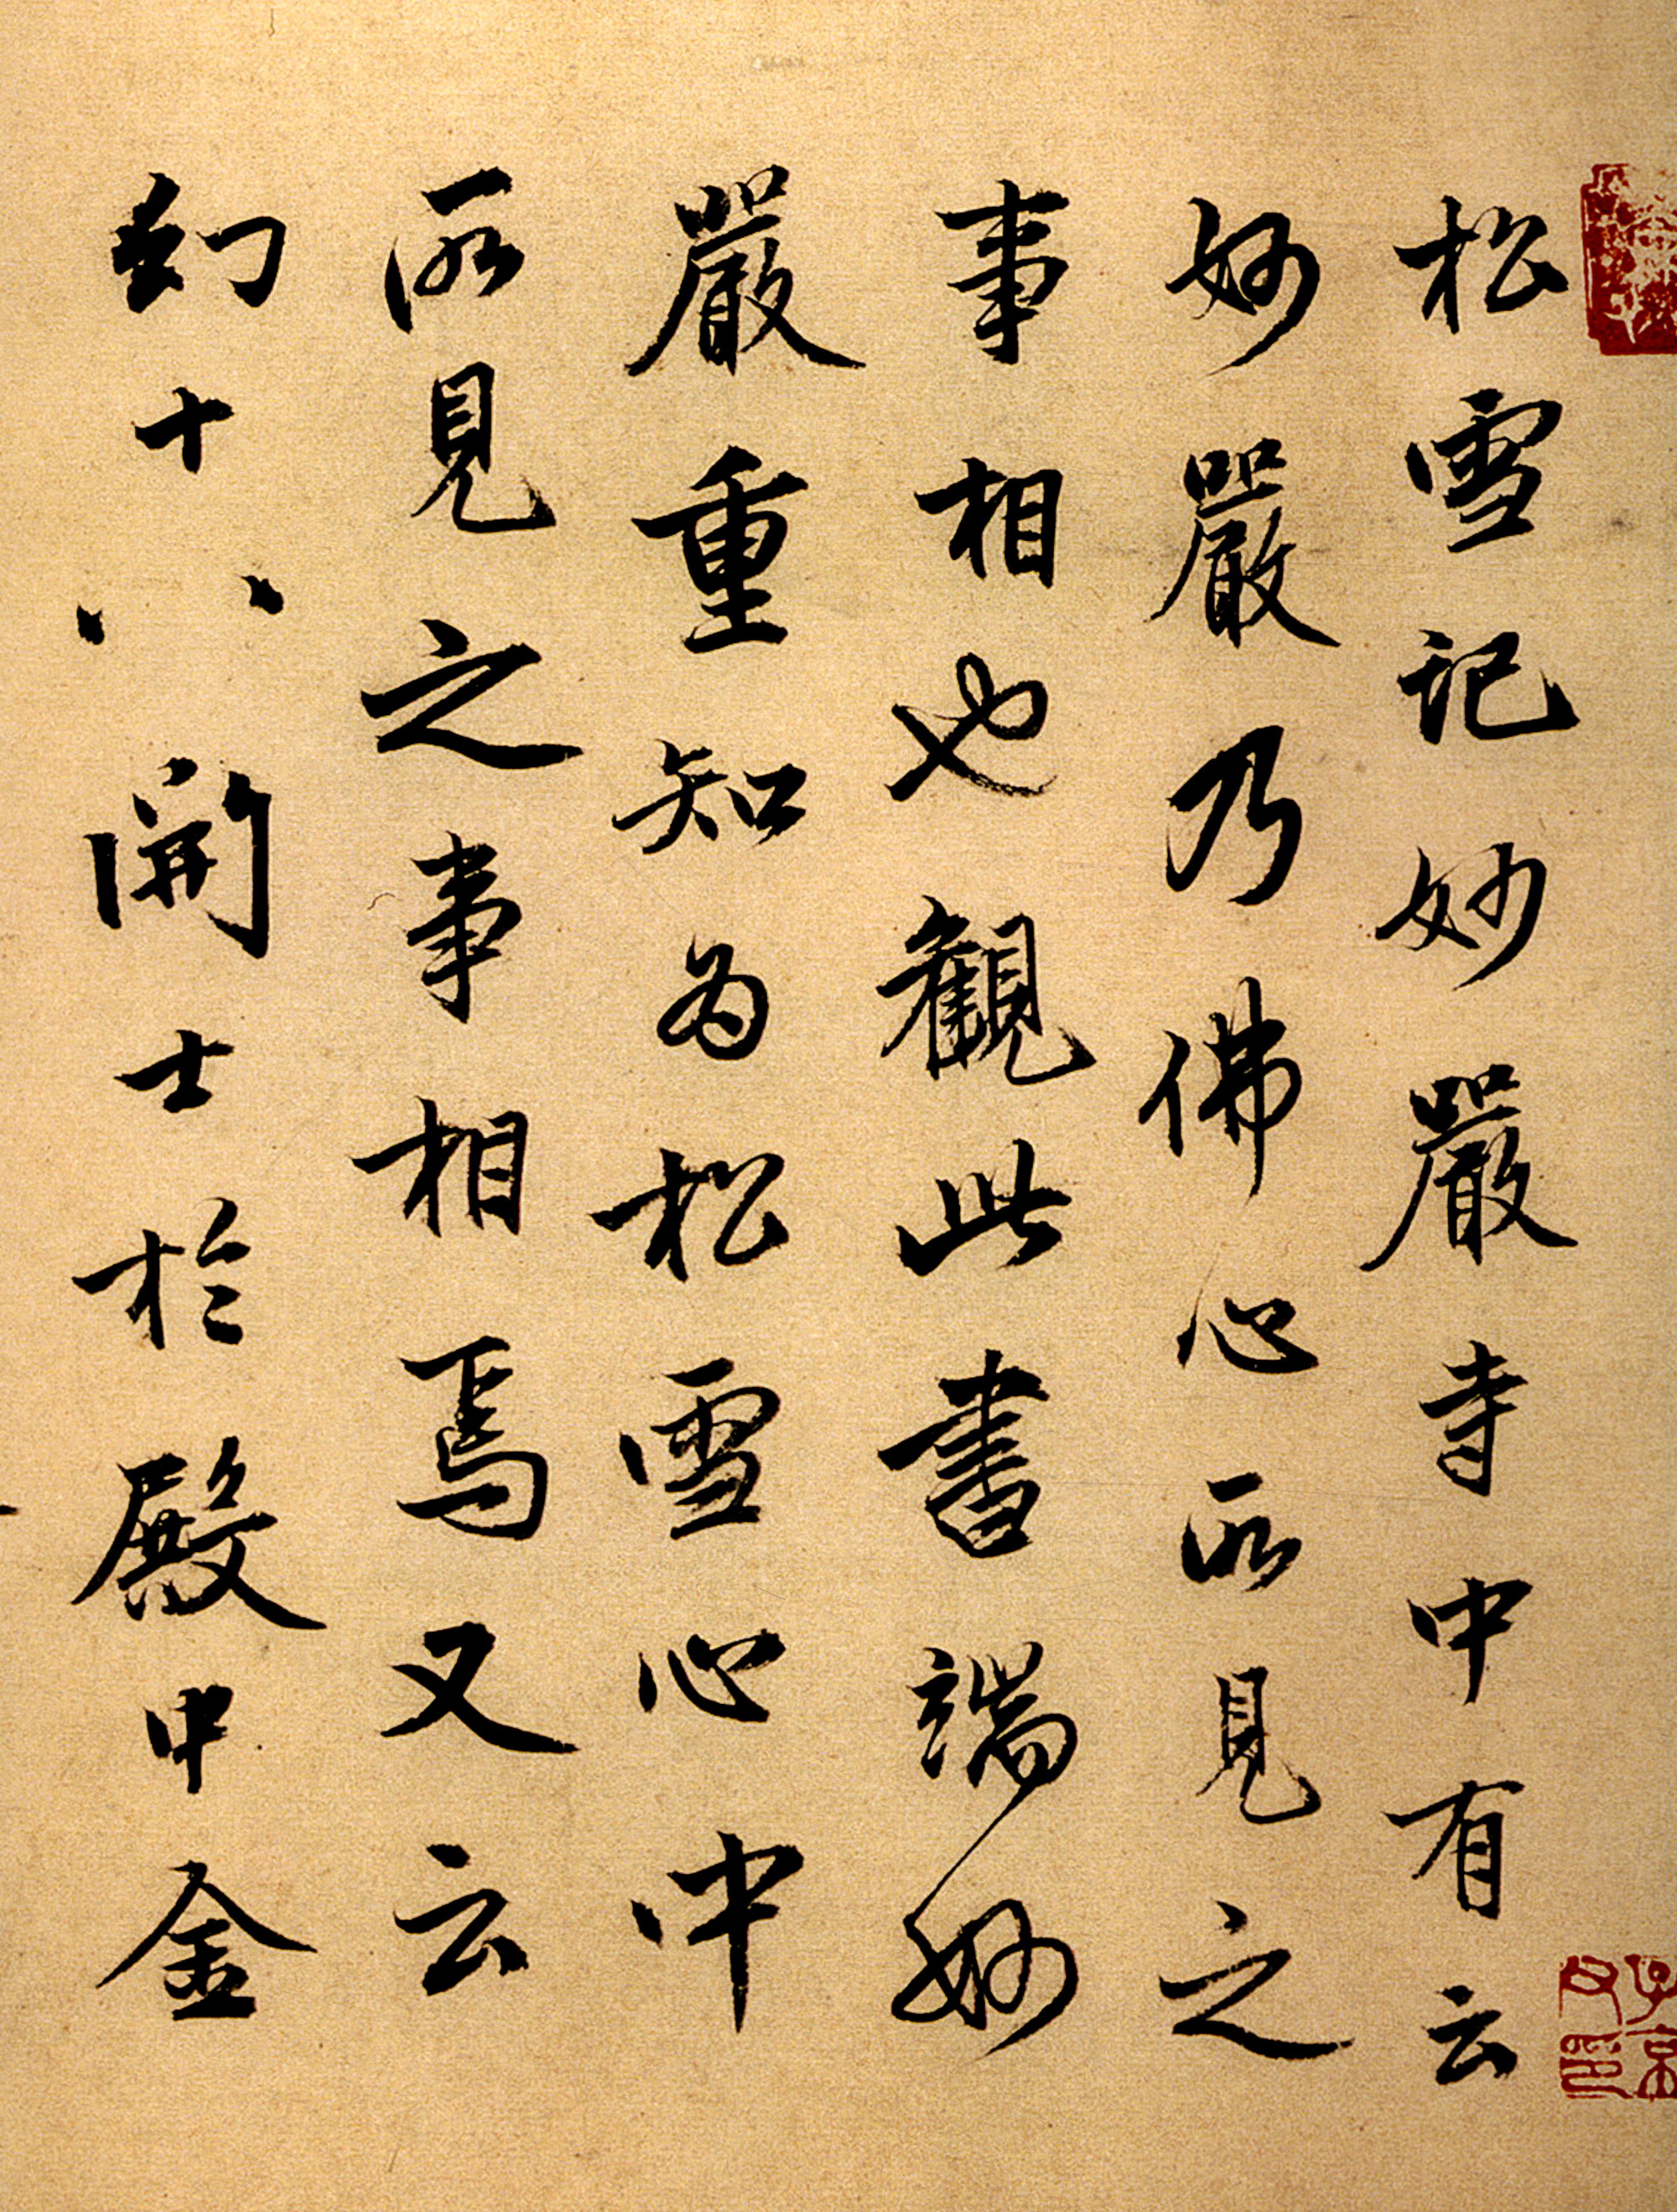 松雪記妙嚴寺中有云
妙嚴乃佛心所見之
事相也觀此書端妙
嚴重知為松雪心中
所見之事相焉又云
幻十八開士於殿中金